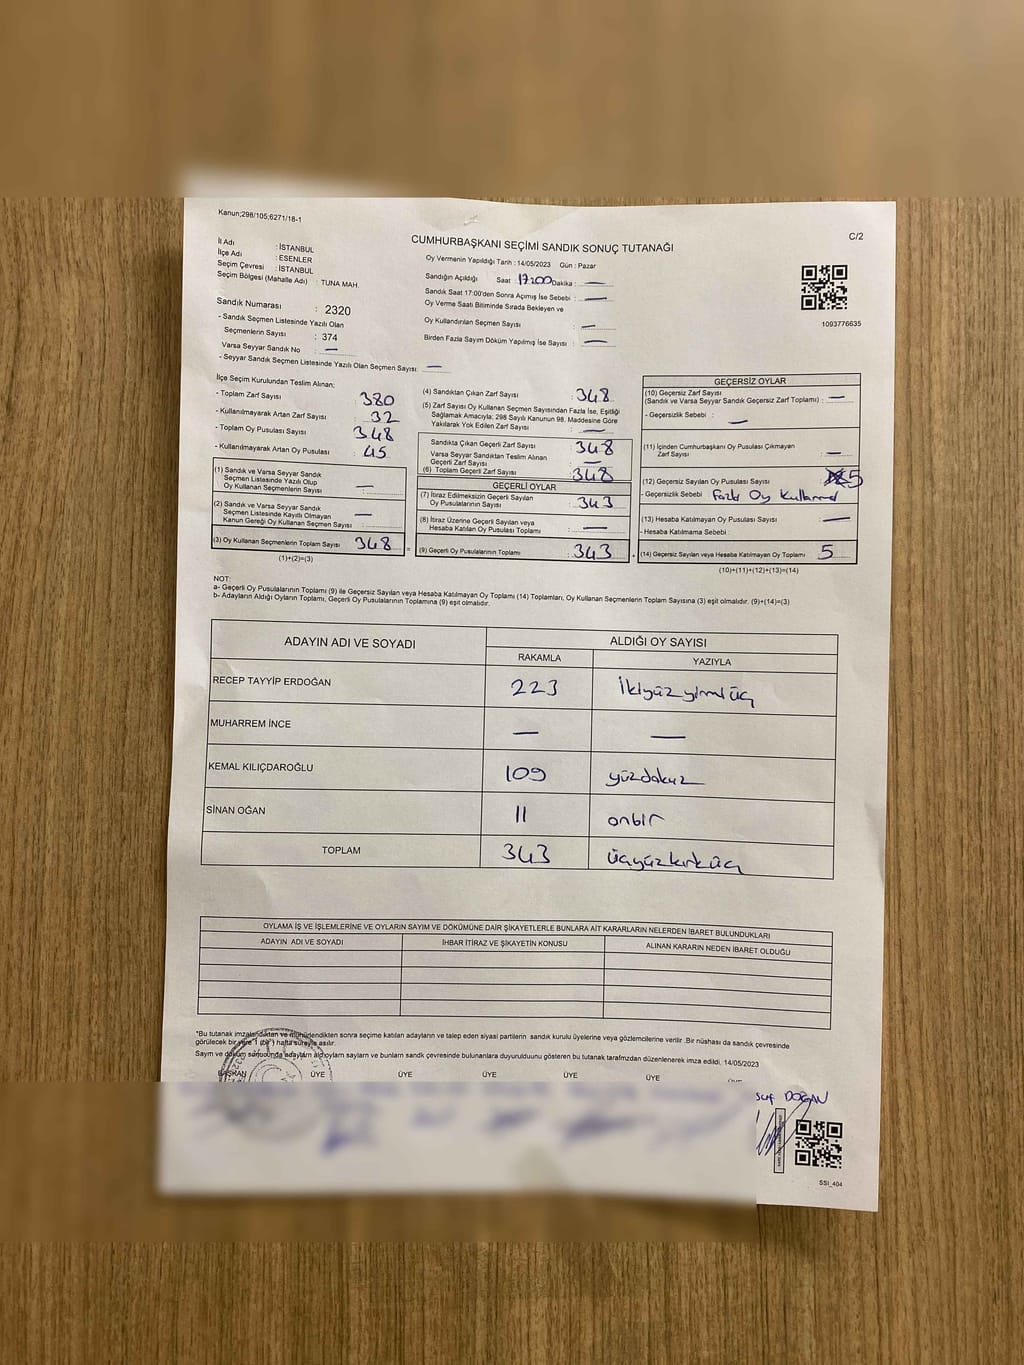 Kanun;298/105;6271/18-1
C/2
CUMHURBAŞKANI SEÇİMİ SANDIK SONUÇ TUTANAĞI
İl Adı : İSTANBUL
İlçe Adı : ESENLER
Seçim Çevresi : İSTANBUL
Seçim Bölgesi (Mahalle Adı) : TUNA MAH.
Sandık Numarası : 2320
- Sandık Seçmen Listesinde Yazılı Olan
Seçmenlerin Sayısı : 374
Varsa Seyyar Sandık No : —
- Seyyar Sandık Seçmen Listesinde Yazılı Olan Seçmen Sayısı: —
Oy Vermenin Yapıldığı Tarih : 14/05/2023 Gün : Pazar
Sandığın Açıldığı Saat : 17:00 Dakika : —
Sandık Saat 17:00'den Sonra Açımış İse Sebebi : —
Oy Verme Saati Bitiminde Sırada Bekleyen ve
Oy Kullandırılan Seçmen Sayısı : —
Birden Fazla Sayım Döküm Yapılmış İse Sayısı : —
1093776635
İlçe Seçim Kurulundan Teslim Alınan;
- Toplam Zarf Sayısı : 380
- Kullanılmayarak Artan Zarf Sayısı : 32
- Toplam Oy Pusulası Sayısı : 348
- Kullanılmayarak Artan Oy Pusulası : 45
(1) Sandık ve Varsa Seyyar Sandık
Seçmen Listesinde Yazılı Olup
Oy Kullanan Seçmenlerin Sayısı : —
(2) Sandık ve Varsa Seyyar Sandık
Seçmen Listesinde Kayıtlı Olmayan
Kanun Gereği Oy Kullanan Seçmen Sayısı : —
(3) Oy Kullanan Seçmenlerin Toplam Sayısı : 348
(1)+(2)=(3)
(4) Sandıktan Çıkan Zarf Sayısı : 348
(5) Zarf Sayısı Oy Kullanan Seçmen Sayısından Fazla İse, Eşitliği
Sağlamak Amacıyla; 298 Sayılı Kanunun 98. Maddesine Göre
Yakılarak Yok Edilen Zarf Sayısı : —
Sandıkta Çıkan Geçerli Zarf Sayısı : 348
Varsa Seyyar Sandıktan Teslim Alınan
Geçerli Zarf Sayısı : —
(6) Toplam Geçerli Zarf Sayısı : 348
GEÇERLİ OYLAR
(7) İtiraz Edilmeksizin Geçerli Sayılan
Oy Pusulalarının Sayısı : 343
(8) İtiraz Üzerine Geçerli Sayılan veya
Hesaba Katılan Oy Pusulası Toplamı : —
(9) Geçerli Oy Pusulalarının Toplamı : 343
GEÇERSİZ OYLAR
(10) Geçersiz Zarf Sayısı
(Sandık ve Varsa Seyyar Sandık Geçersiz Zarf Toplamı) : —
- Geçersizlik Sebebi : —
(11) İçinden Cumhurbaşkanı Oy Pusulası Çıkmayan
Zarf Sayısı : —
(12) Geçersiz Sayılan Oy Pusulası Sayısı : 5
- Geçersizlik Sebebi : Fazla Oy Kullanma
(13) Hesaba Katılmayan Oy Pusulası Sayısı : —
- Hesaba Katılmama Sebebi :
(14) Geçersiz Sayılan veya Hesaba Katılmayan Oy Toplamı : 5
(10)+(11)+(12)+(13)=(14)
NOT:
a- Geçerli Oy Pusulalarının Toplamı (9) ile Geçersiz Sayılan veya Hesaba Katılmayan Oy Toplamı (14) Toplamları, Oy Kullanan Seçmenlerin Toplam Sayısına (3) eşit olmalıdır. (9)+(14)=(3)
b- Adayların Aldığı Oyların Toplamı, Geçerli Oy Pusulalarının Toplamına (9) eşit olmalıdır.
ADAYIN ADI VE SOYADI ALDIĞI OY SAYISI
RAKAMLA YAZIYLA
RECEP TAYYİP ERDOĞAN 223 İkiyüzyirmiüç
MUHARREM İNCE — —
KEMAL KILIÇDAROĞLU 109 yüzdokuz
SİNAN OĞAN 11 onbir
TOPLAM 343 üçyüzkırküç
OYLAMA İŞ VE İŞLEMLERİNE VE OYLARIN SAYIM VE DÖKÜMÜNE DAİR ŞİKAYETLERLE BUNLARA AİT KARARLARIN NELERDEN İBARET BULUNDUKLARI
ADAYIN ADI VE SOYADI İHBAR İTİRAZ VE ŞİKAYETİN KONUSU ALINAN KARARIN NEDEN İBARET OLDUĞU
*Bu tutanak imzalandıktan ve mühürlendikten sonra seçime katılan adayların ve talep eden siyasi partilerin sandık kurulu üyelerine veya gözlemcilerine verilir. Bir nüshası da sandık çevresinde
görülecek bir yere 1 (bir) hafta süreyle asılır.
Sayım ve döküm sonucunda adayların aldığı oyların sayıları ve bunların sandık çevresinde bulunanlara duyurulduğunu gösteren bu tutanak tarafımızdan düzenlenerek imza edildi. 14/05/2023
BAŞKAN ÜYE ÜYE ÜYE ÜYE ÜYE
suf DOĞAN
SSI_404